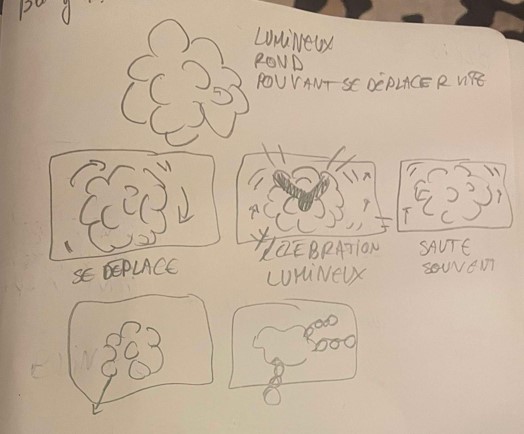 LUMINEUX
ROND
POUVANT SE DÉPLACER VITE
SE DÉPLACE
LUMINEUX
SAUTE
SOUVENT